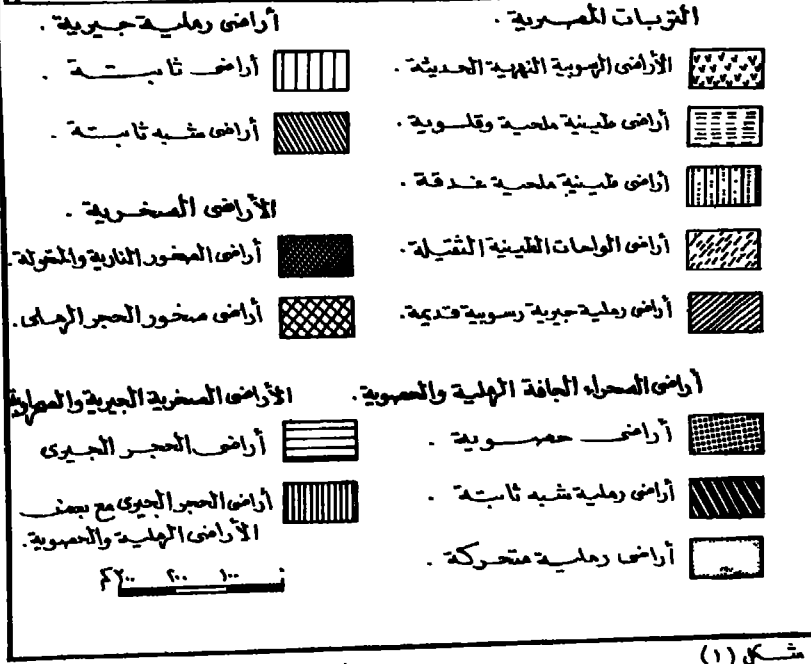 التربات المصرية .
الأراضى الرسوبية النهرية الحديثة .
أراضى طينية ملحية وقلوية .
أراضى طينية ملحية غدقة .
أراضى الواحات الطينية الثقيلة .
أراضى رملية جيرية رسوبية قديمة .
أراضى الصحراء الجافة الرملية والحصوية .
أراضى حصوية .
أراضى رملية شبه ثابتة .
أراضى رملية متحركة .
أراضى رملية جيرية .
أراضى ثابتة .
أراضى شبه ثابتة .
الأراضى الصخرية .
أراضى الصخور النارية والمتحولة .
أراضى صخور الحجر الرملى .
الأراضى الصخرية الجيرية والصحراوية
أراضى الحجر الجيرى
أراضى الحجر الجيرى مع بعض
الأراضى الرملية والحصوية .
٠ ١٠٠ ٢٠٠ ٣٠٠ كم
شكل (١)